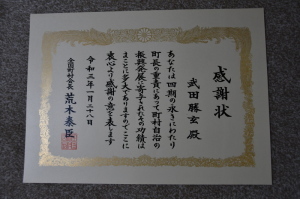 感謝状
武田勝玄 殿
あなたは四期の永きにわたり
町長の重責にあって町村自治の
振興発展に寄与されたその功績は
まことに多大でありますのでここに
衷心より感謝の意を表します
令和三年一月二十八日
全国町村会長 荒木泰臣